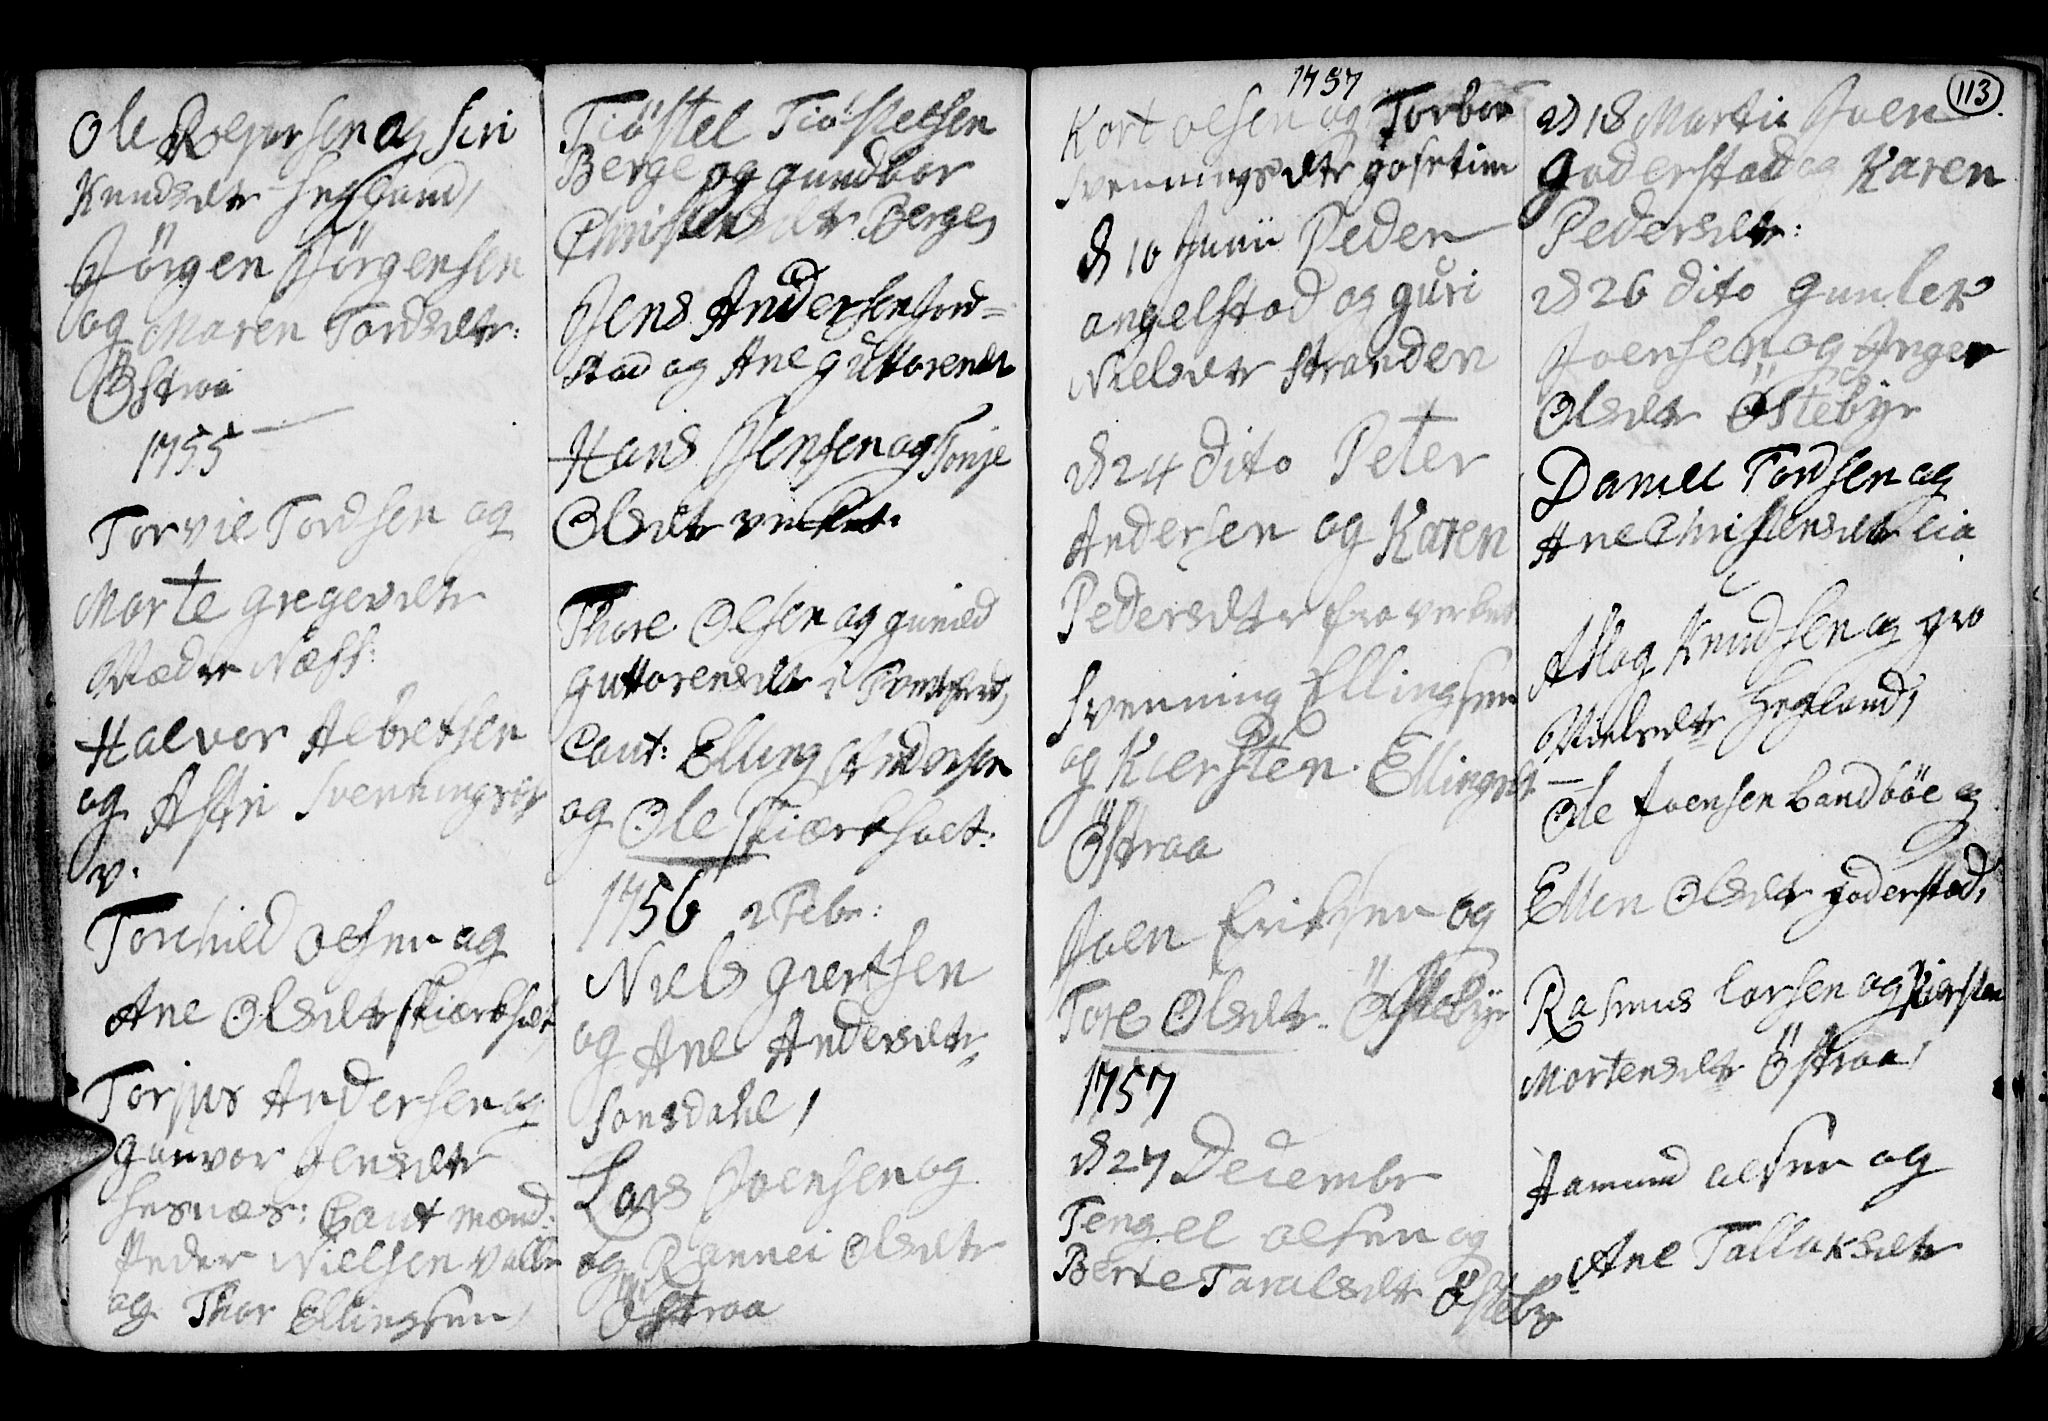 Ole Rejersen og siri
Knudsdtr Hegland,
Jörgen Jörgensen
og Maren Tordsdtr:
Östraa
1755
Torvil Tordsen og
Marte gregersdtr
Næss:
Halvor Albretsen
og Astri Svenningsdtr
v.
Torchild olsen og
Ane Olsdtr skiærkholt,
Torjus Andersen og
gunvor Jensdtr
hesnæs: Caut mænd:
Peder Nielsen valle
og Thor Ellingsen,
Tiöstel Tiöstelsen
Berge og gundbor
Christensdtr Berge,
Jens Andersen
stad og Ane guttorensdtr
Hans Jensen og Tonje
Olsdtr
Thore Olsen og gunild
guttorensdtr i
Caut: Elling Andersen
og Ole skiærkholt:
1756 2 Febr:
Niels giertsen
og Ane Andersdtr
sonsdahl,
Lars Joensen og
og Rannei Olsdtr
Östraa
1757
Kort olsen og Torbor
Svenningsdtr goset
d 10 Junii Peder
angelstad og guri
Nielsdtr stranden
d 24 dito Peter
Andersen og Karen
Pedersdtr fra
Svenning Ellingsen
og Kiersten Ellingsdtr
Östraa
Joen Eriksen og
Tore Olsdtr. Östebye
1757
d 27 Decembr
Tengel olsen og
Berte Taralsdtr Östebye
113
d 18 Martii Joen
goderstad og Karen
Pedersdtr:
d 26 dito gunler
Joensen og Inger
Olsdtr Östebye
Daniel Tordsen og
Ane Christensdtr lia
Aslag Knudsen og gro
Nielsdtr Hegland,
Ole Joensen Landböe og
Ellen Olsdtr goderstad,
Rasmus Larsen og Kiersten
Mortensdtr Östraa,
Aamund olsen og
Ane Tallaksdtr